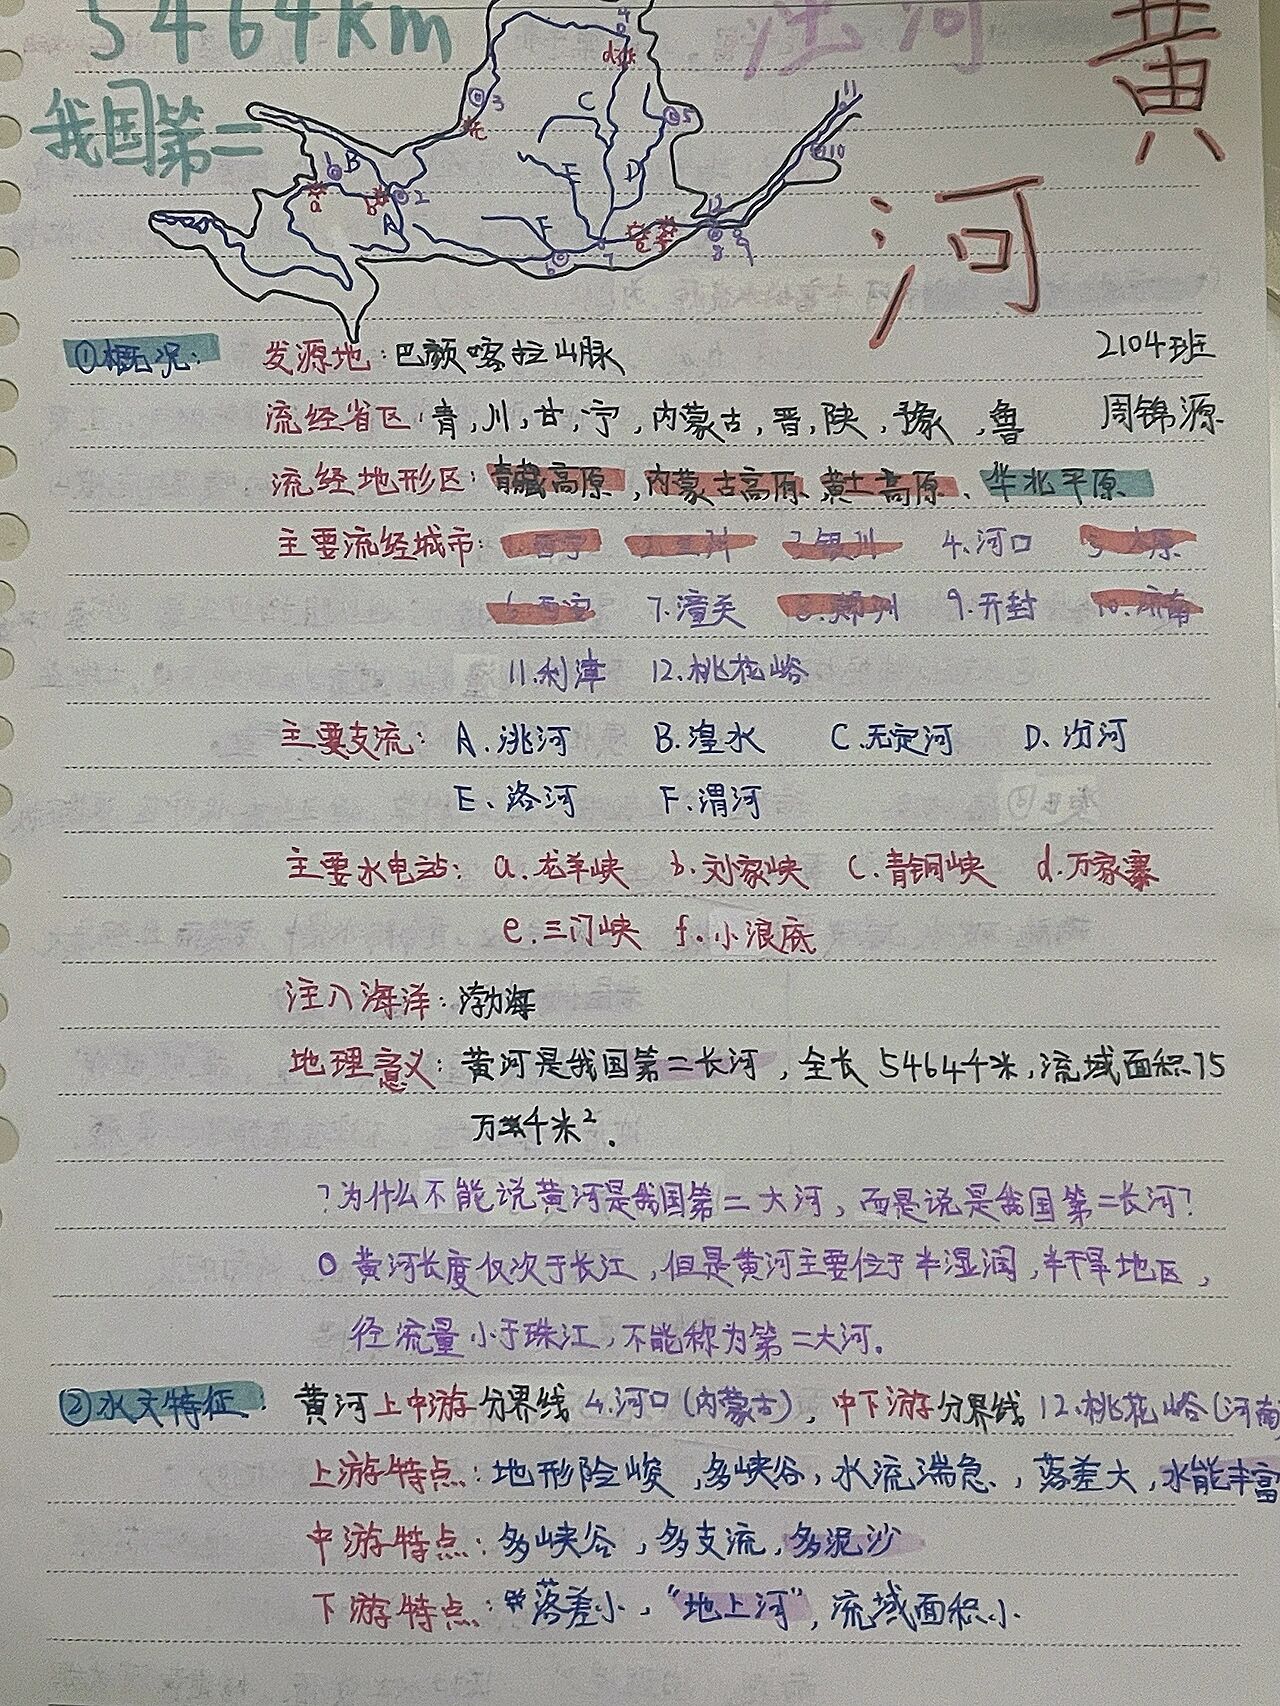 5464km
我国第二
黄
河
①概况：
发源地：巴颜喀拉山脉
2104班
流经省区：青，川，甘，宁，内蒙古，晋，陕，豫，鲁
周锦源
流经地形区：青藏高原，内蒙古高原、黄土高原、华北平原
主要流经城市：1.西宁 2.兰州 3.银川 4.河口 5.太原
6.西安 7.潼关 8.郑州 9.开封 10.济南
11.利津 12.桃花峪
主要支流：A.洮河 B.湟水 C.无定河 D.汾河
E、洛河 F.渭河
主要水电站：a.龙羊峡 b.刘家峡 C.青铜峡 d.万家寨
e.三门峡 f.小浪底
注入海洋：渤海
地理意义：黄河是我国第二长河，全长5464千米，流域面积75
万千米²。
？为什么不能说黄河是我国第二大河，而是说是我国第二长河？
O 黄河长度仅次于长江，但是黄河主要位于半湿润，半干旱地区，
径流量小于珠江，不能称为第二大河。
②水文特征：黄河上中游分界线 4.河口（内蒙古），中下游分界线 12.桃花峪（河南
上游特点：地形险峻，多峡谷，水流湍急、，落差大，水能丰富
中游特点：多峡谷，多支流，多泥沙
下游特点：落差小，“地上河”，流域面积小